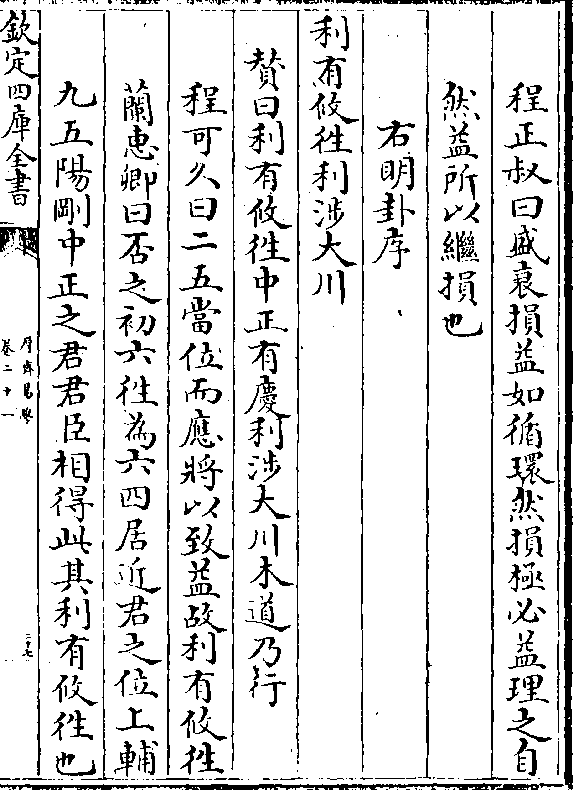 程正叔曰盛衰損益如循環然損極必益理之自
然益所以繼損也
右明卦序
利有攸徃利涉大川
賛曰利有攸徃中正有慶利涉大川木道乃行
程可久曰二五當位而應將以致益故利有攸徃
蘭惠卿曰否之初六徃為六四居近君之位上輔
九五陽剛中正之君君臣相得此其利有攸徃也
欽定四庫全書
厚齋易學
卷二十一